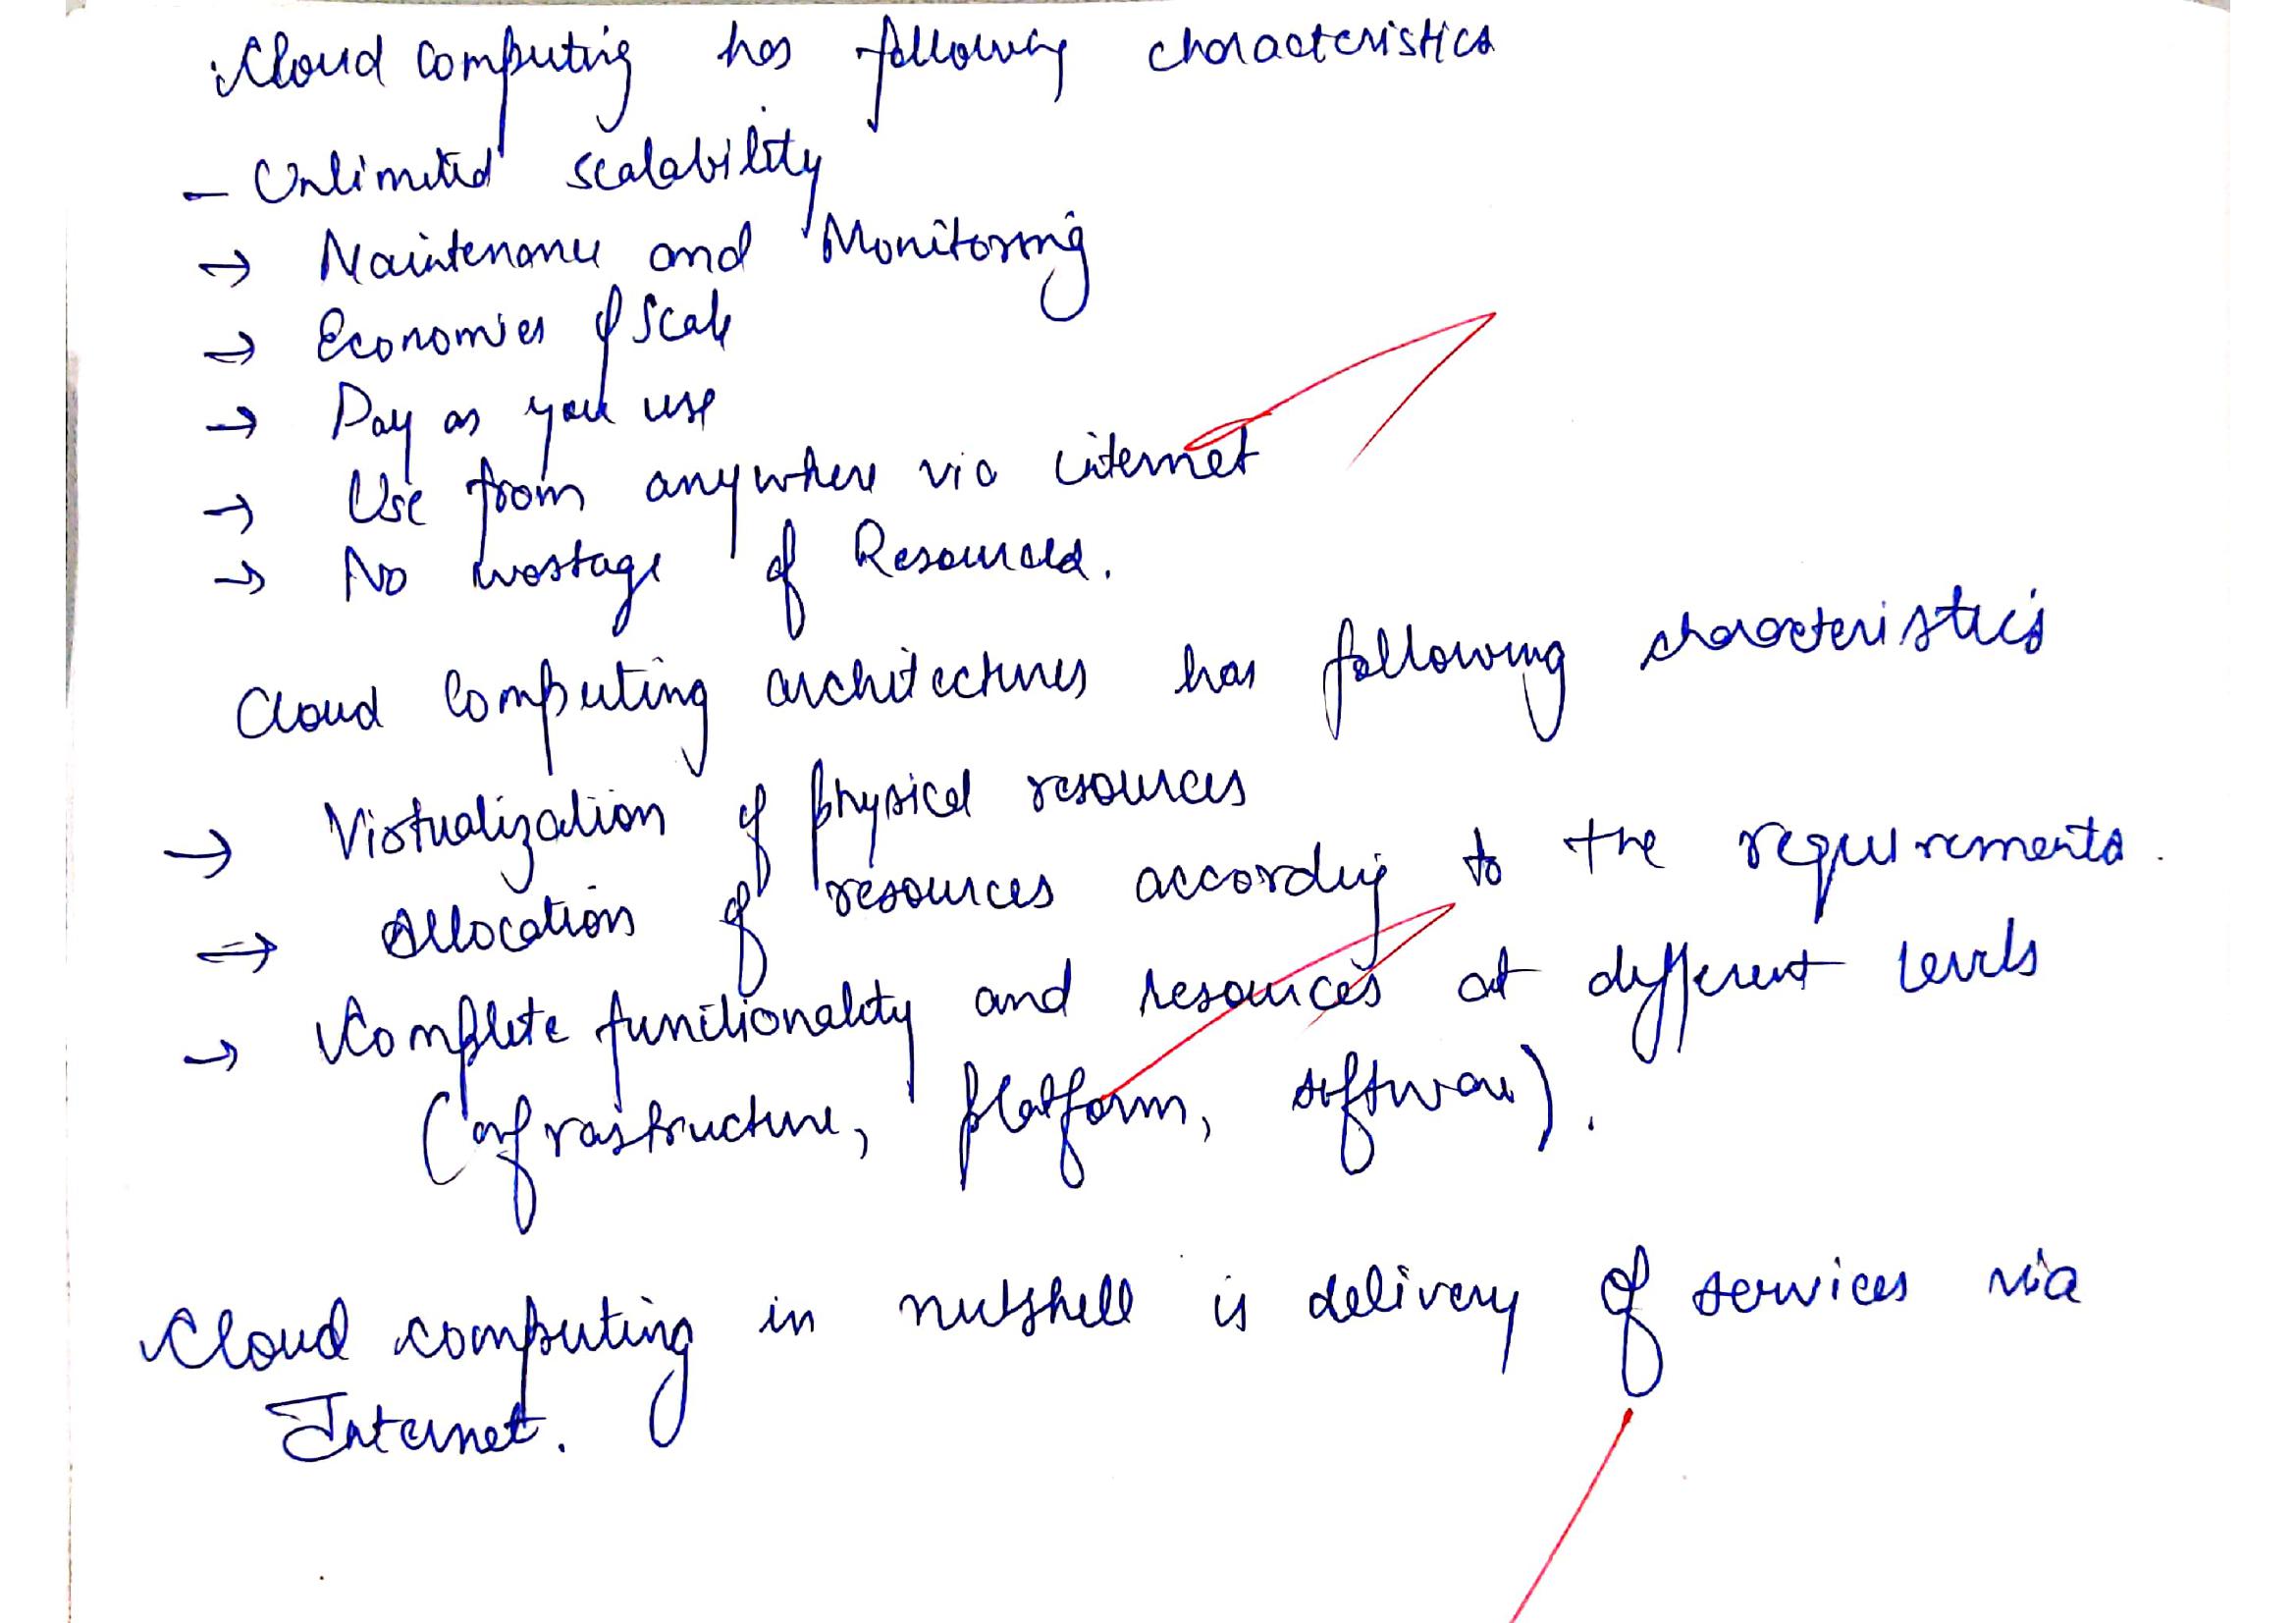 Cloud computing has following characteristics
- Unlimited scalability
→ Maintenance and Monitoring
→ Economies of Scale
→ Pay as you use
→ Use from anywhere via internet
→ No wastage of Resources.
Cloud Computing architectures has following characteristics
→ Virtualization of physical resources
→ Allocation of resources according to the requirements.
→ Complete functionality and resources at different levels
(infrastructure, platform, software).
Cloud computing in nutshell is delivery of services via
Internet.